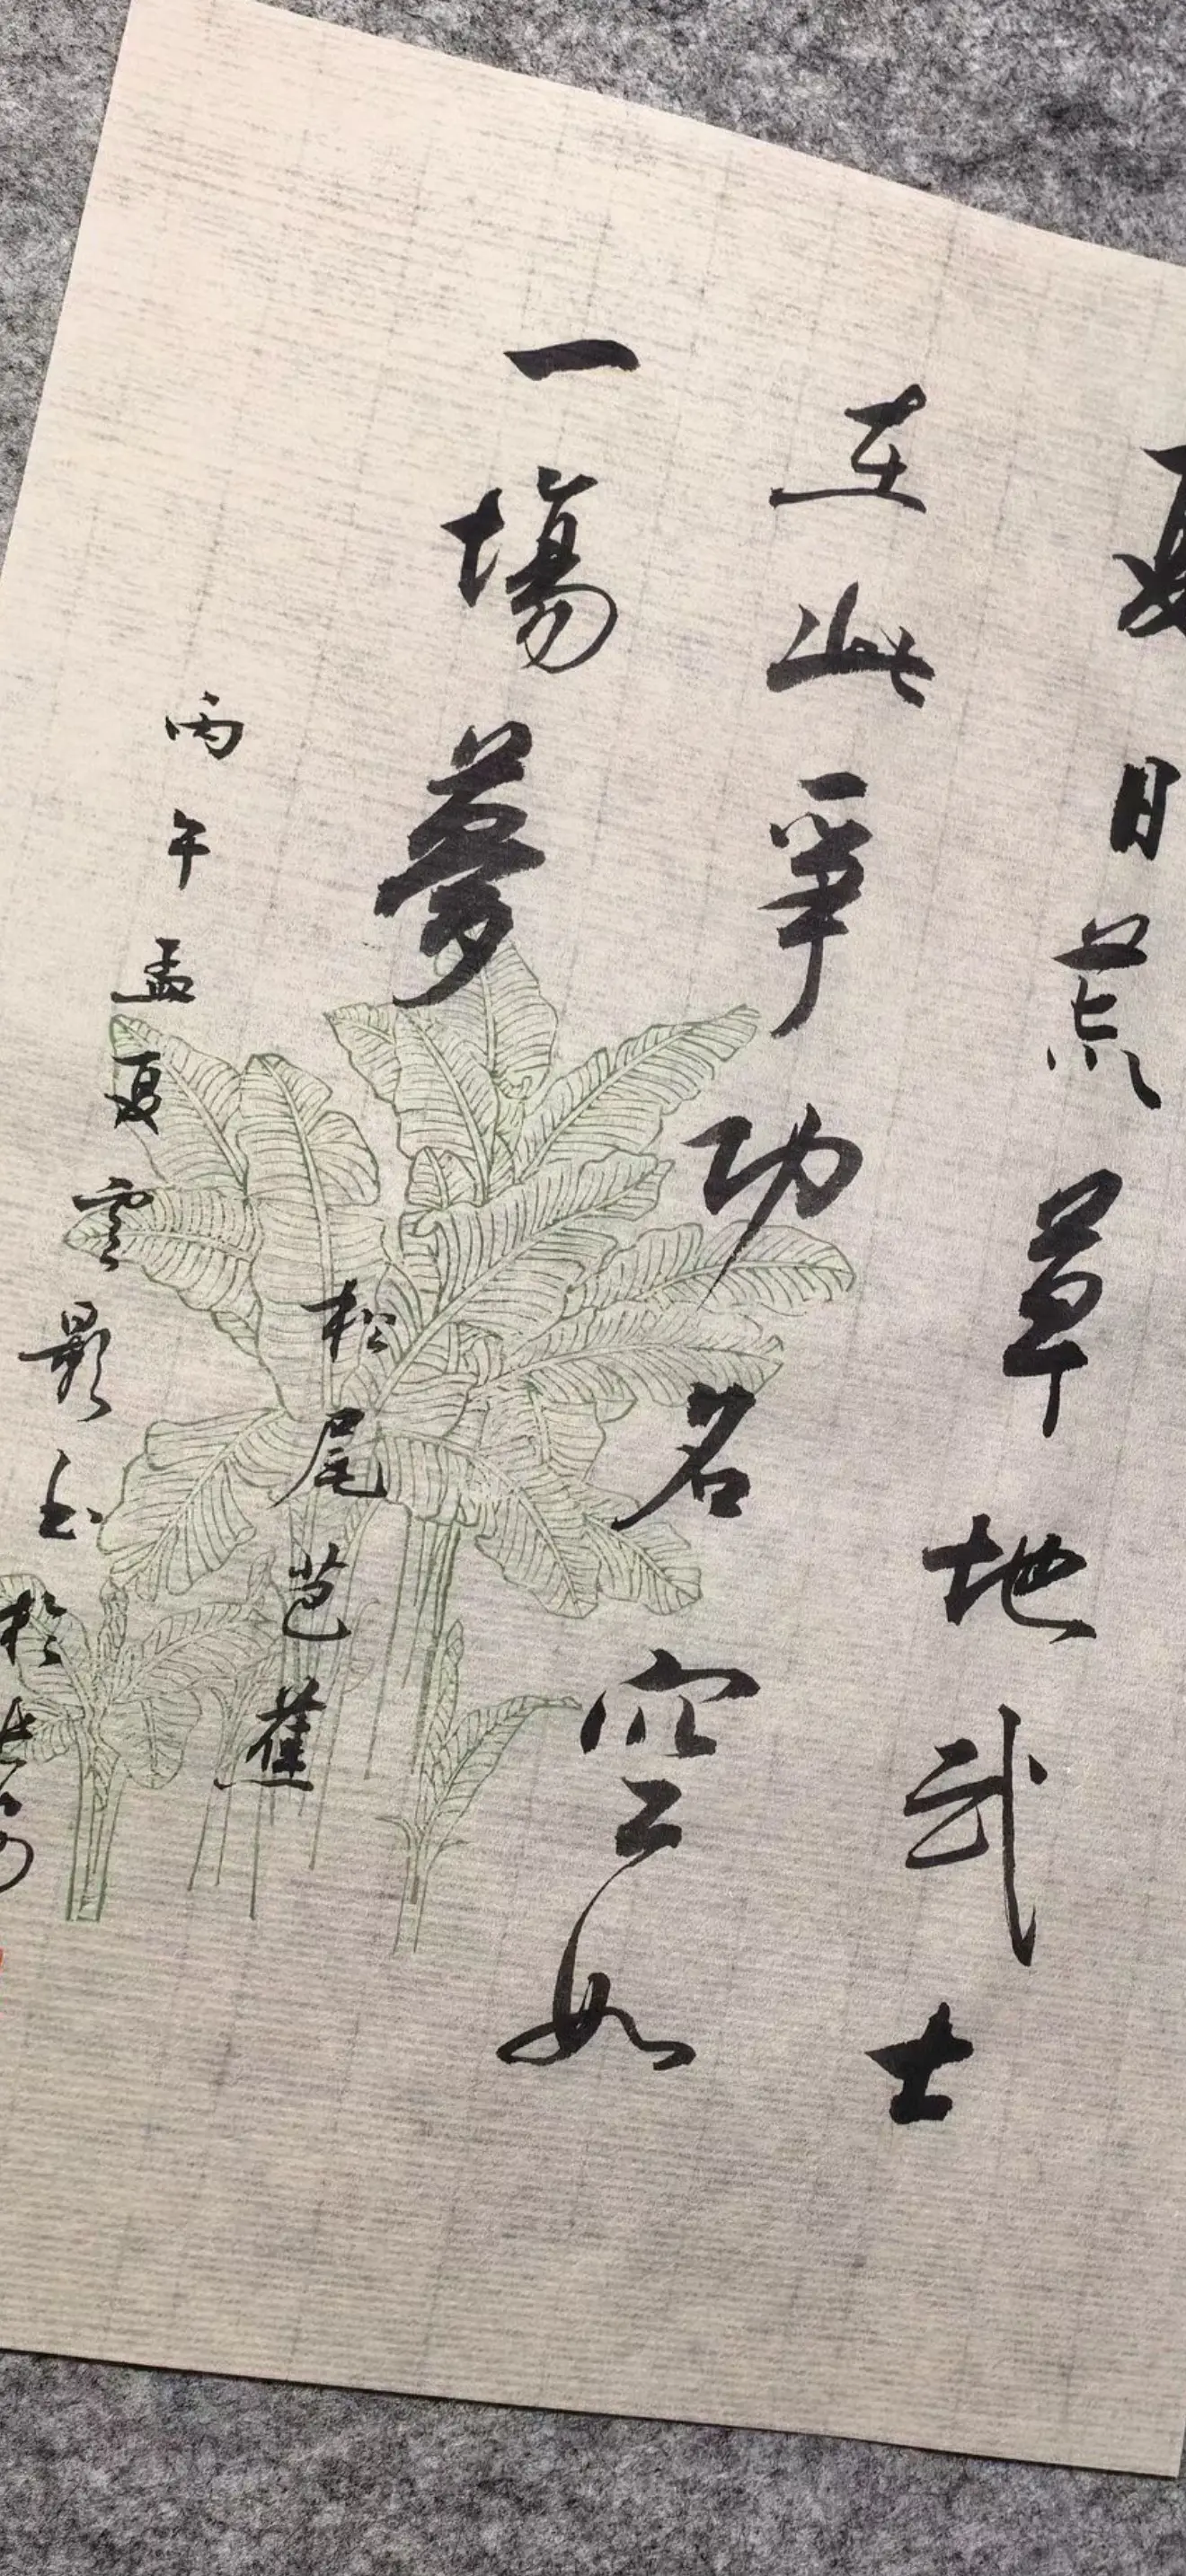 夏日荒草地武士
在此爭功名空如
一場夢
松尾芭蕉
丙午孟夏雲影書於